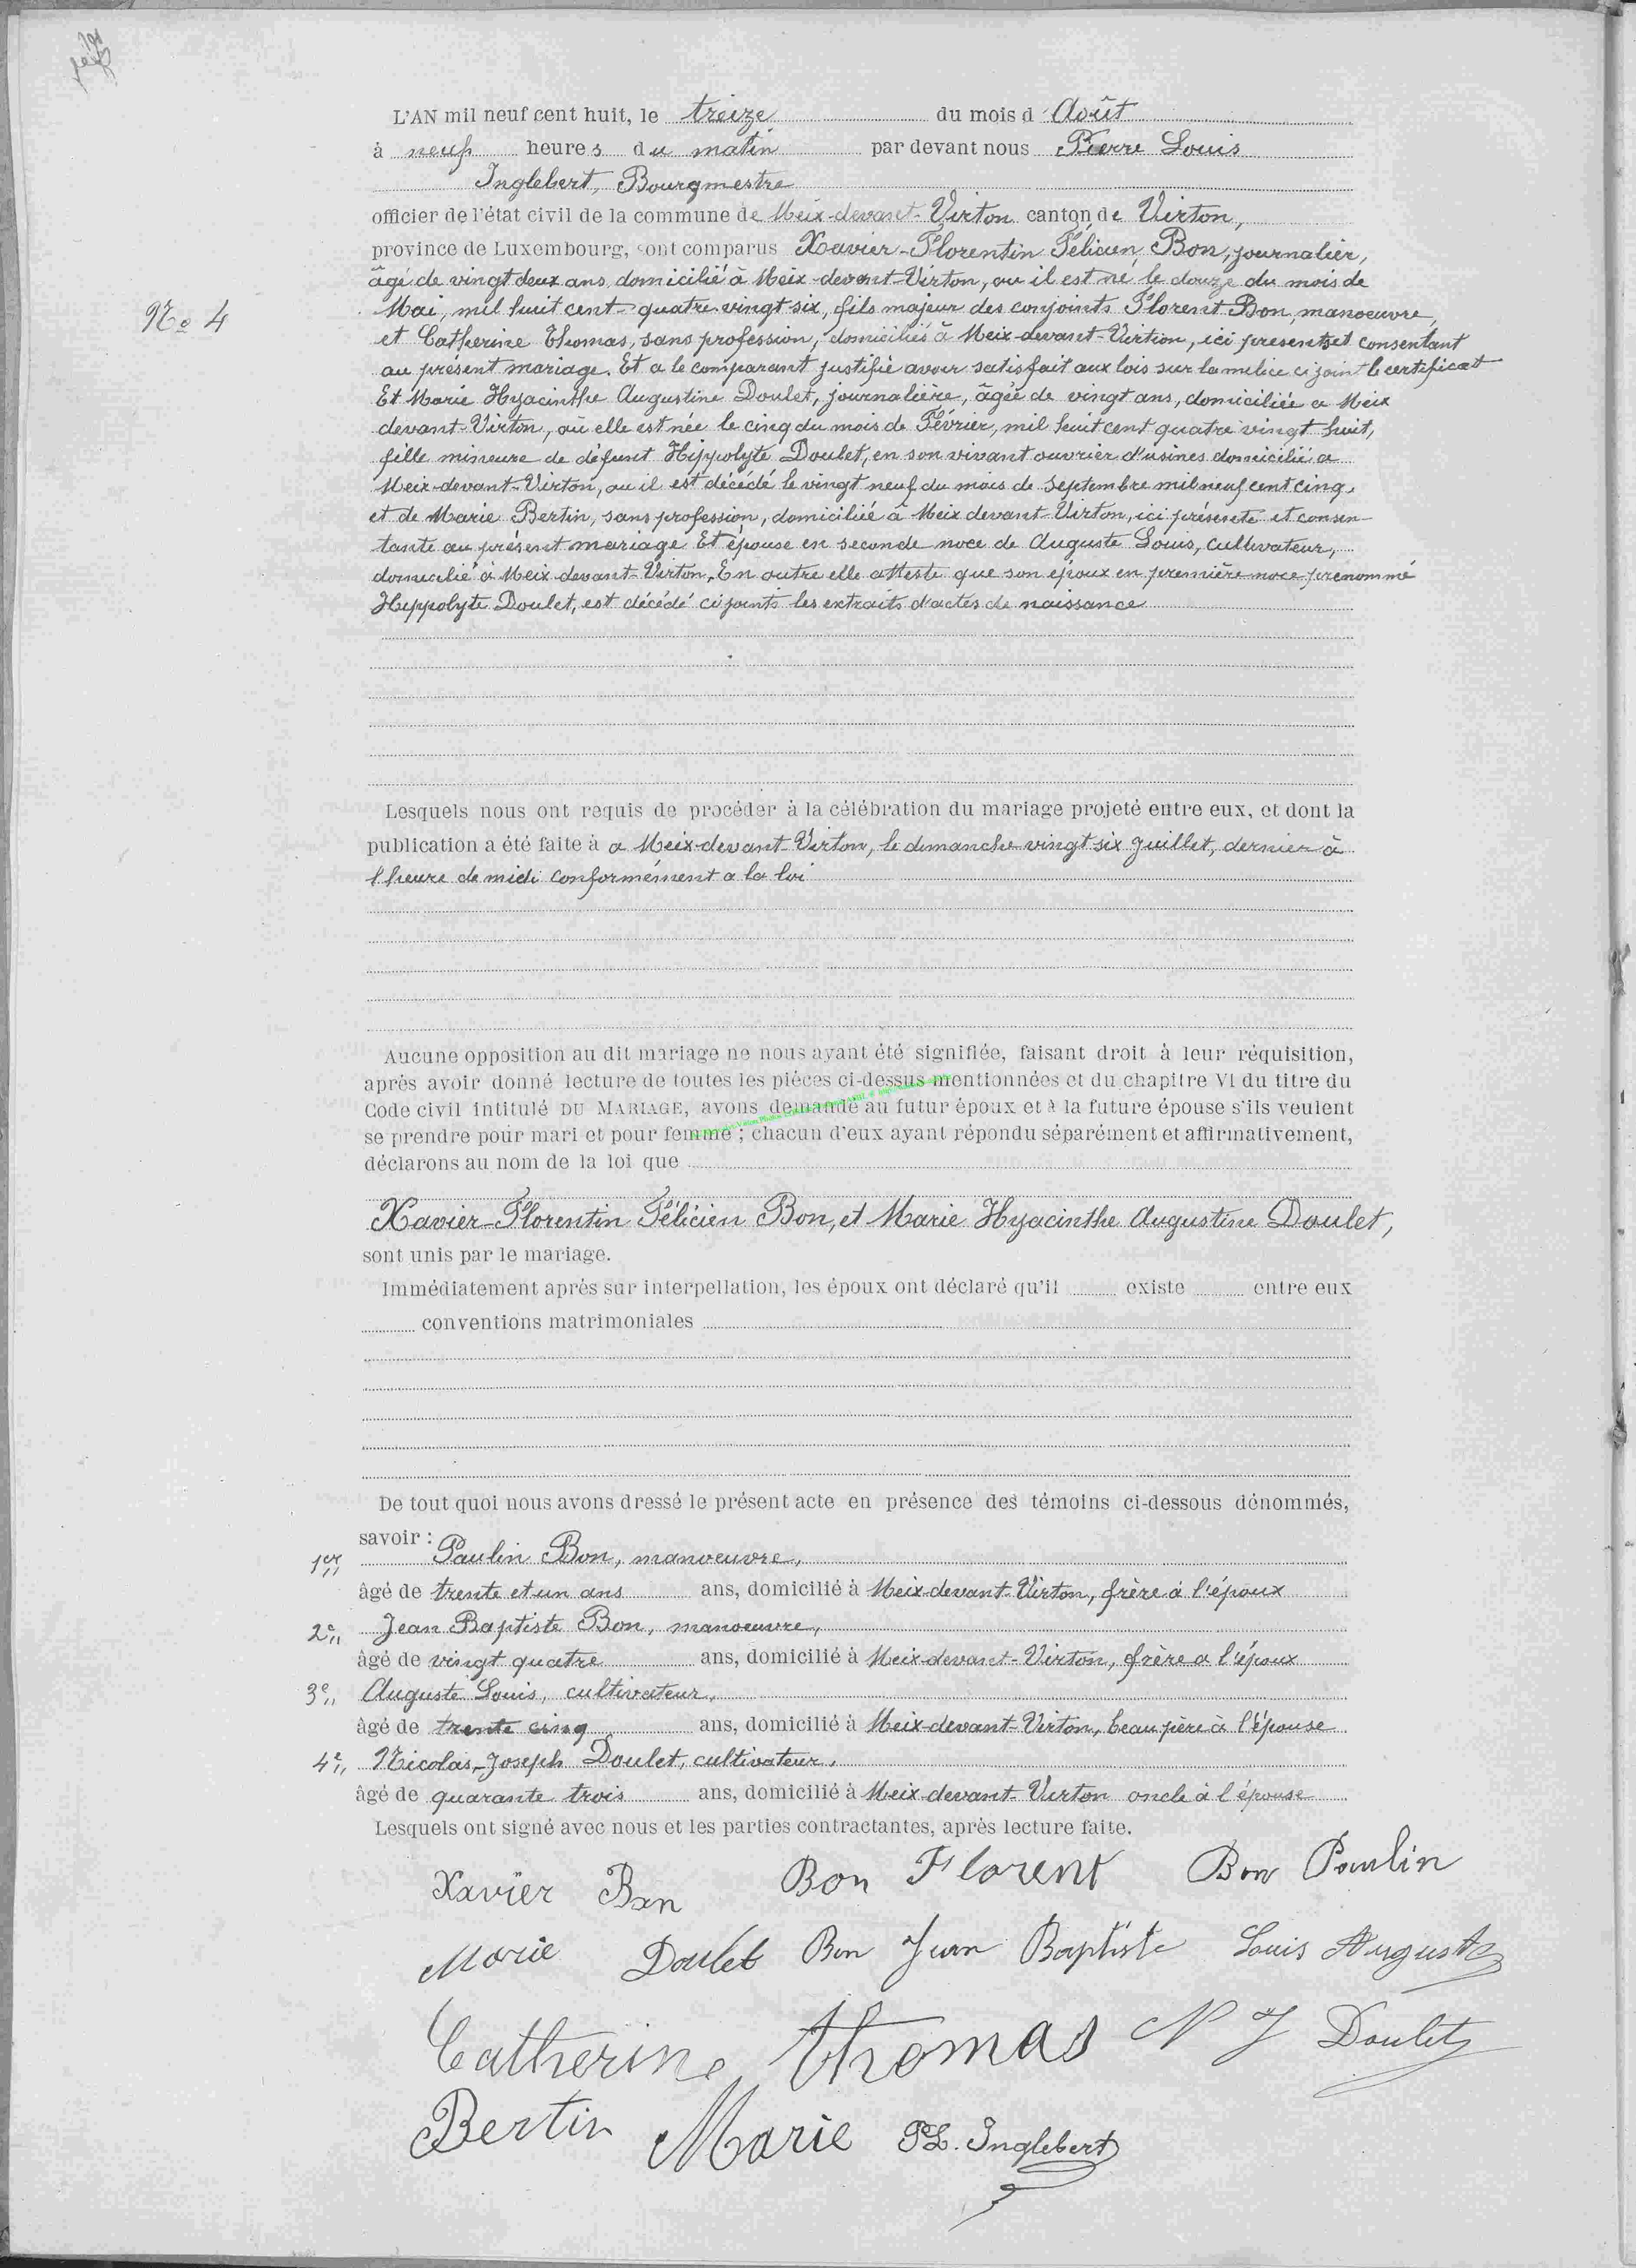 L'AN mil neuf cent huit, le treize du mois d'Août
à neuf heures du matin par devant nous Pierre Louis
Inglebert, Bourgmestre
officier de l'état civil de la commune de Meix-devant-Virton canton de Virton,
province de Luxembourg, sont comparus Xavier-Florentin Félicien Bon, journalier,
âgé de vingt deux ans domicilié à Meix-devant-Virton, ou il est né le douze du mois de
No 4
Mai, mil huit cent quatre vingt six, fils majeur des conjoints Florent Bon, manoeuvre,
et Catherine Thomas, sans profession, domiciliés à Meix-devant-Virtion, ici présents et consentant
au présent mariage. Et a le comparant justifié avoir satisfait aux lois sur la milice ci joint le certificat
Et Marie Hyacinthe Augustine Doulet, journalière, âgée de vingt ans, domiciliée a Meix
devant-Virton, où elle est née le cinq du mois de Février, mil huit cent quatre vingt huit,
fille mineure de défunt Hippolyte Doulet, en son vivant ouvrier d'usines domicilié a
Meix-devant-Virton, ou il est décédé le vingt neuf du mois de Septembre mil neuf cent cinq,
et de Marie Bertin, sans profession, domiciliée à Meix devant-Virton, ici présente et consen-
tante au présent mariage Et épouse en seconde noce de Auguste Louis, Cultivateur,
domicilié à Meix devant-Virton. En outre elle atteste que son époux en première noce prenommé
Hippolyte Doulet, est décédé ci joints les extraits d'actes de naissance
Lesquels nous ont requis de procéder à la célébration du mariage projeté entre eux, et dont la
publication a été faite à a Meix-devant-Virton, le dimanche vingt six Juillet, dernier à
l'heure de midi conformément a la loi
Aucune opposition au dit mariage ne nous ayant été signifiée, faisant droit à leur réquisition,
après avoir donné lecture de toutes les pièces ci-dessus mentionnées et du chapitre VI du titre du
Code civil intitulé DU MARIAGE, avons demandé au futur époux et à la future épouse s'ils veulent
se prendre pour mari et pour femme ; chacun d'eux ayant répondu séparément et affirmativement,
déclarons au nom de la loi que
Xavier-Florentin Félicien Bon, et Marie Hyacinthe Augustine Doulet,
sont unis par le mariage.
Immédiatement après sur interpellation, les époux ont déclaré qu'il existe entre eux
conventions matrimoniales
De tout quoi nous avons dressé le présent acte en présence des témoins ci-dessous dénommés,
savoir :
1er Paulin Bon, manoeuvre,
âgé de trente et un ans ans, domicilié à Meix-devant-Virton, frère à l'époux
2e Jean Baptiste Bon, manoeuvre,
âgé de vingt quatre ans, domicilié à Meix-devant-Virton, frère a l'époux
3e Auguste Louis, cultivateur,
âgé de trente cinq ans, domicilié à Meix-devant-Virton, beau père à l'épouse
4e Nicolas-Joseph Doulet, cultivateur,
âgé de quarante trois ans, domicilié à Meix-devant-Virton oncle à l'épouse
Lesquels ont signé avec nous et les parties contractantes, après lecture faite.
Xavier Bon Bon Florent Bon Paulin
Marie Doulet Bon Jean Baptiste Louis Auguste
Catherine Thomas N J Doulet
Bertin Marie PL. Inglebert